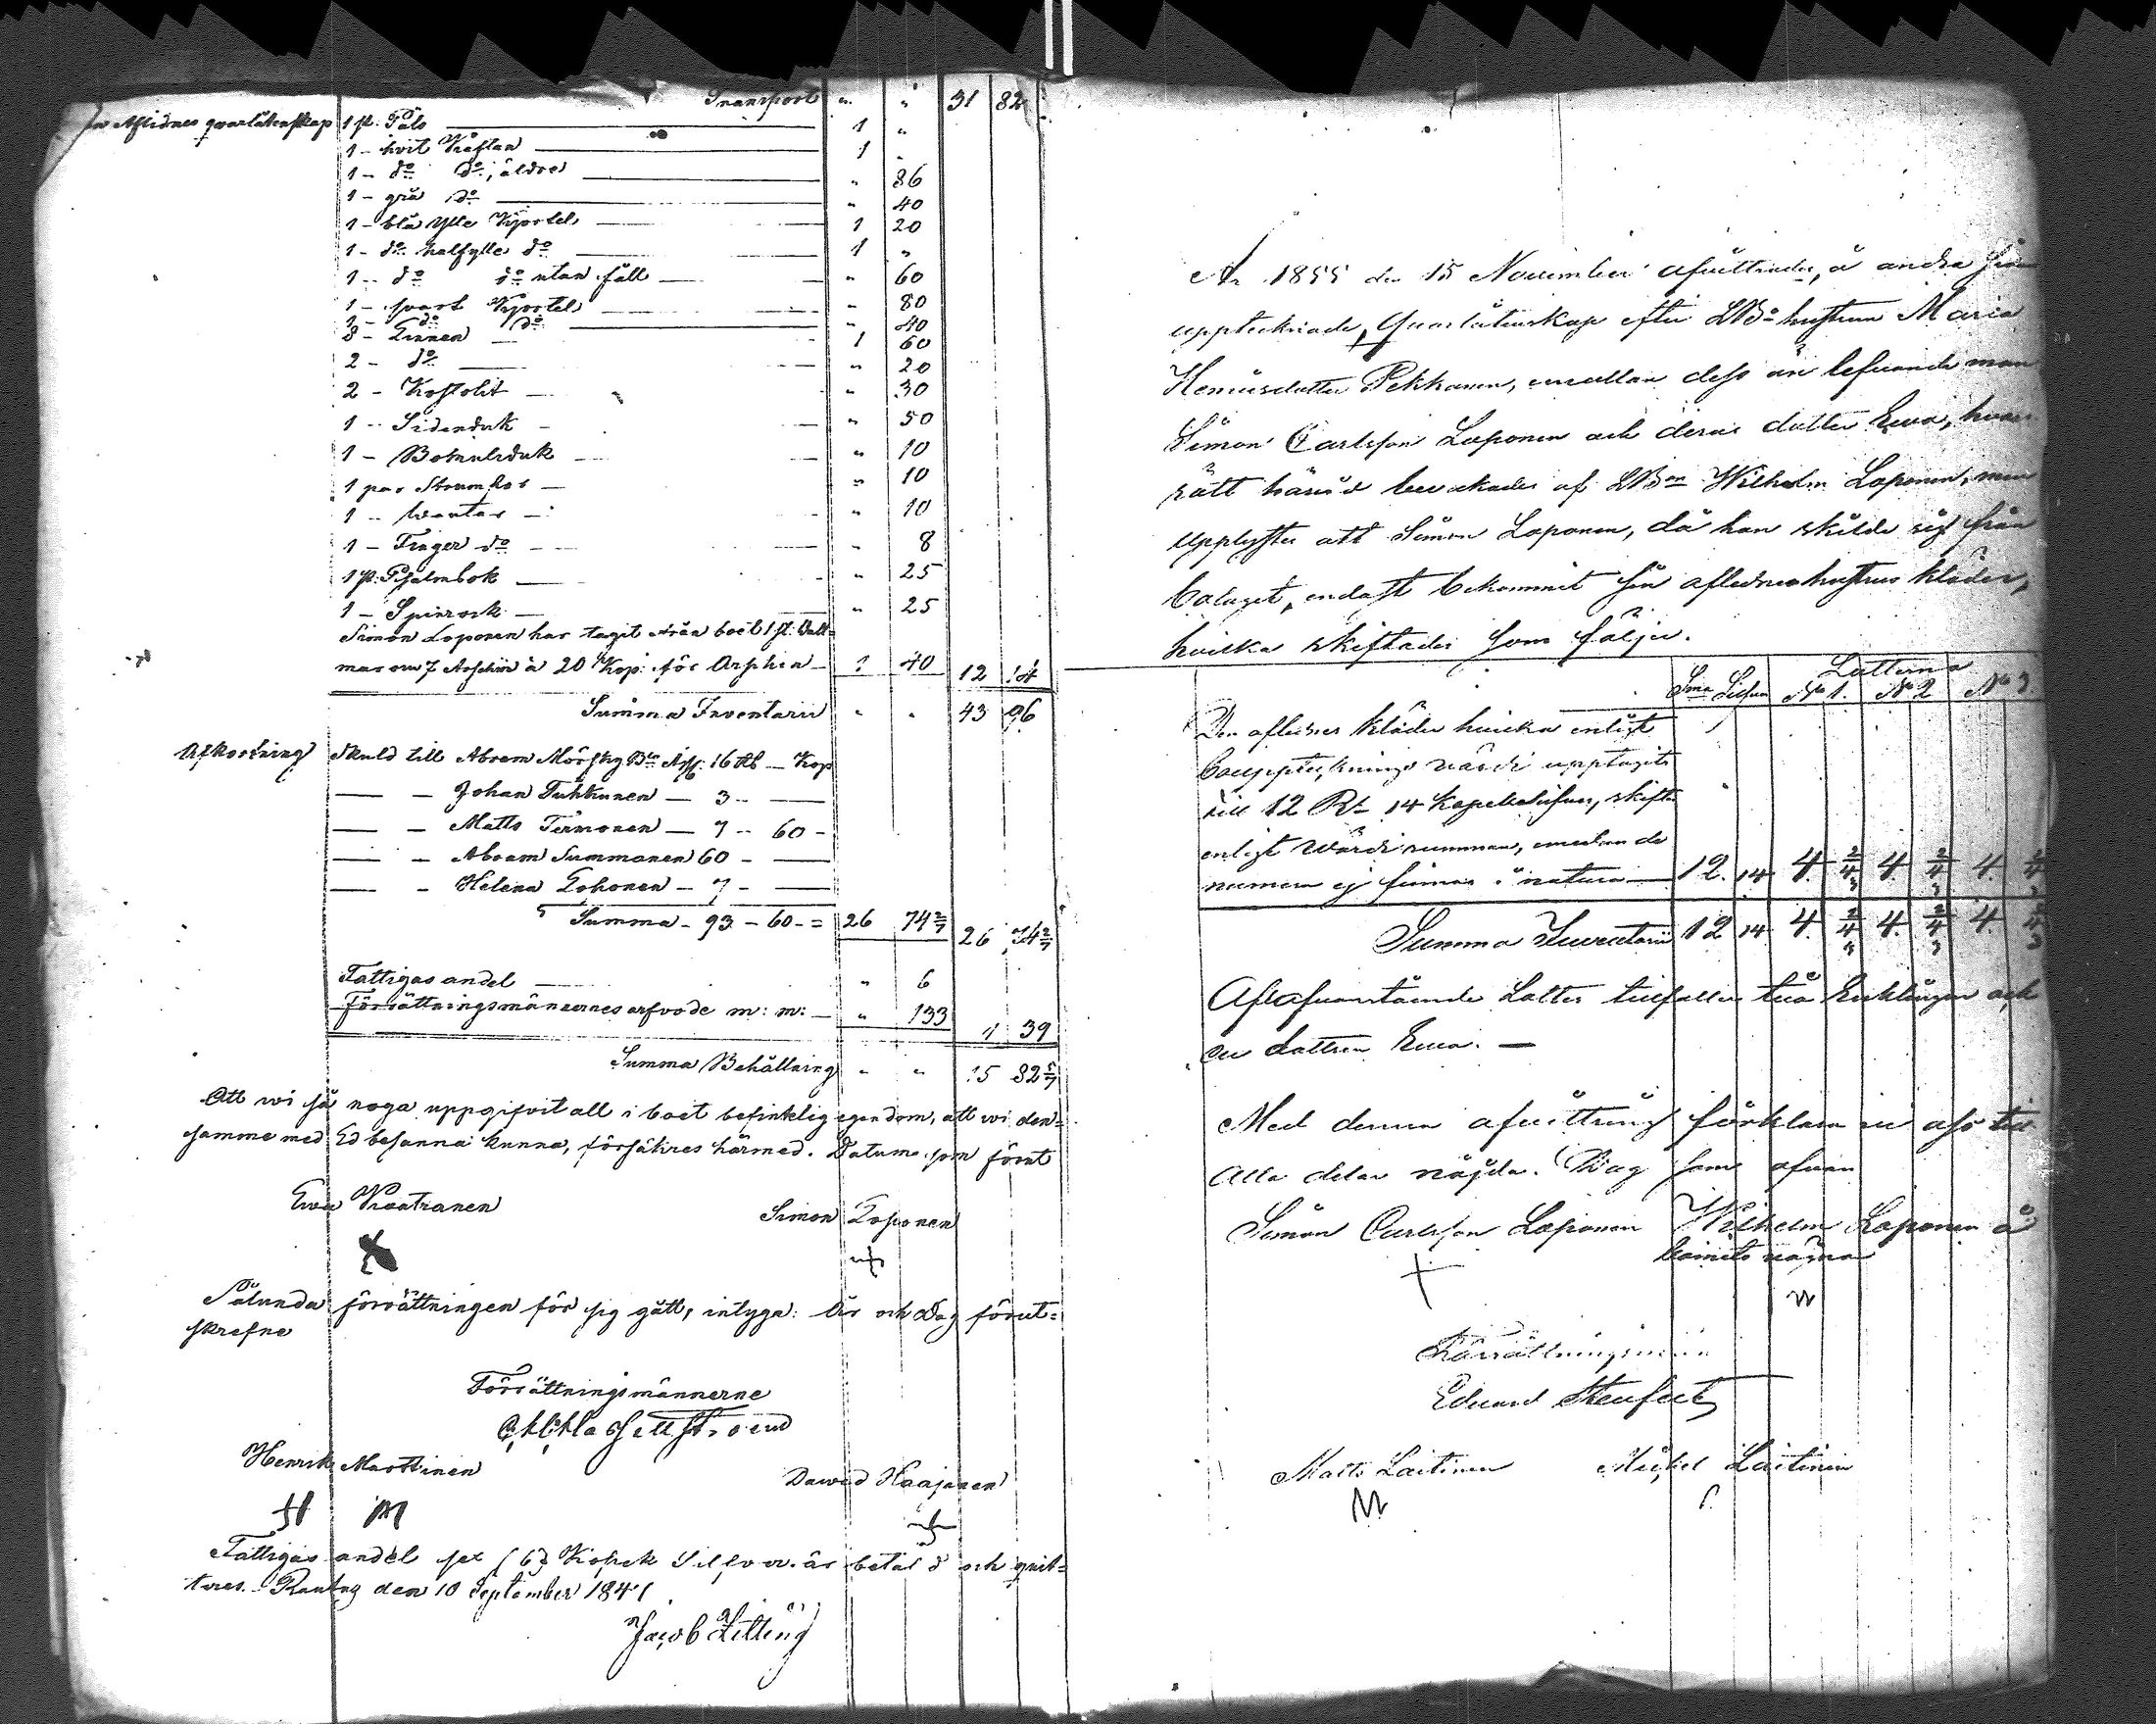 Transport " " 31 82
Aflidnes qvarlåtenskap 1 st: Päls 1 "
1 - hvit Kaftan 1 "
1 - do do, äldre " 86
1 - grå do " 40
1 - blå ylle Kjortel 1 20
1 - do halfylle do 1 "
1 - do do utan fåll " 60
1 - svart Kjortel " 80
1 - do do " 40
8 - Linnen 1 60
2 - do " 20
2 - Kostolit " 30
1 - Sidenduk " 50
1 - Bomulsduk " 10
1 par Strumpor " 10
1 - Wantar " 10
1 - Finger do " 8
1 st: Psalmbok " 25
1 - Spinrock " 25
Simon Loponen har tagit ifrån boet 1 st: Vall=
mar om 7 Arschin à 20 Kop: för Arschin 1 40 12 14
Summa Inventarii " " 43 96
Afkortning Skuld till Abrem Mörsky Bco Ass: 16 Rb - Kop
— - Johan Tuhkunen - 3 - —
— - Matts Termonen - 7 - 60 -
— - Abram Summanen 60 - —
— - Helena Lohonen - 7 - —
Summa - 93 - 60 - = 26 74 2/7 26 74 2/7
Fattigas andel " 6
Förrättningsmännernes arfvode m: m: " 133 1 39
Summa Behållning " " 15 82 5/7
Att wi så noga uppgifvit all i boet befinklig egendom, att wi den=
samme med Ed besanna kunna, försäkras härmed. Datum som förut
Ewa Kiaotranen Simon Loponen
Sålunda förrättningen för sig gått, intyga: År och Dag förut=
skrefne
Förrättningsmännerne
Henrik Marttinen Dawid Haajanen
H M
Fattigas andel sex (6) Kopek Silfver är betald och qvit=
teres. Rautus den 10 September 1841
Jacob Zitting
År 1855 den 15 November afvittrades, å andra sidan
upptecknade, Quarlåtenskap efter LBde hustrun Maria
Henricsdotter Pekkanen, emellan dess än lefvande man
Simon Carlsson Loponen och deras dotter Ewa, hvars
rätt härvid bevakades af LBon Wilhelm Loponen, men
upplystes att Simon Loponen, då han skilde sig från
bolaget, endast bekommit sin aflednes hustrus kläder,
hvilka skiftades som följer.
Sma Silfver Lotterna No 1. No 2 No 3.
Den aflednes kläder hvilka enligt
bouppteknings värde upptagits
till 12 Rb 14 kopek silfver, skiftas
enligt värde summan, emedan de
numera ej finnas i natura 12. 14 4. 2/4 4. 2/4 4. 2/4
Summa Inventarii 12 14. 4. 2/4 4. 2/4 4.
Af ofvanstående Lotter tillfaller två Enklingen och
en dottren Ewa. —
Med denna afvittring förklara vi oss till
alla delar nöjda. Dag som ofvan
Simon Carlsson Loponen Wilhelm Loponen å
barnets vägna
Förrättningsmän
Eduard Stenfelt
Matts Laitinen Mickel Laitinen